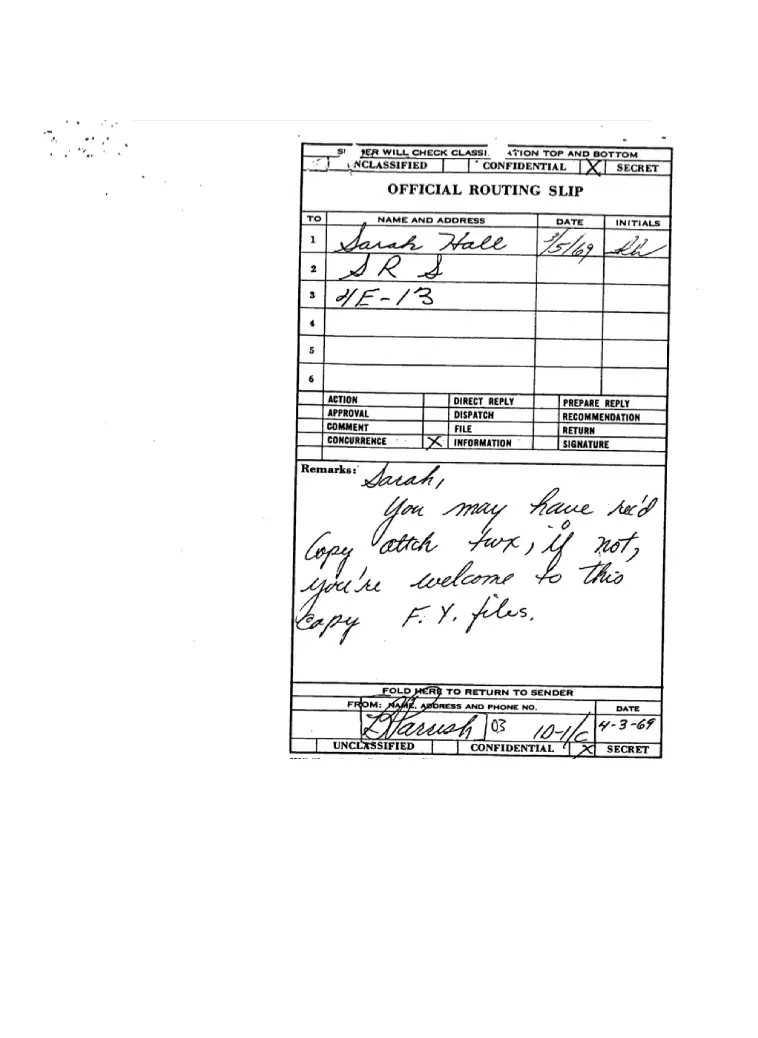 ER WILL CHECK CLASSI ATION TOP AND BOTTOM
NCLASSIFIED CONFIDENTIAL X SECRET
OFFICIAL ROUTING SLIP
TO NAME AND ADDRESS DATE INITIALS
1 Sarah Hall 3/5/69
2 S R S
3 4E-13
4
5
6
ACTION DIRECT REPLY PREPARE REPLY
APPROVAL DISPATCH RECOMMENDATION
COMMENT FILE RETURN
CONCURRENCE X INFORMATION SIGNATURE
Remarks: Sarah,
You may have rec'd
Copy attch twx, if not,
you're welcome to this
Copy F. Y. files.
FOLD HERE TO RETURN TO SENDER
FROM: NAME, ADDRESS AND PHONE NO. DATE
03 10-1/C 4-3-69
UNCLASSIFIED CONFIDENTIAL X SECRET